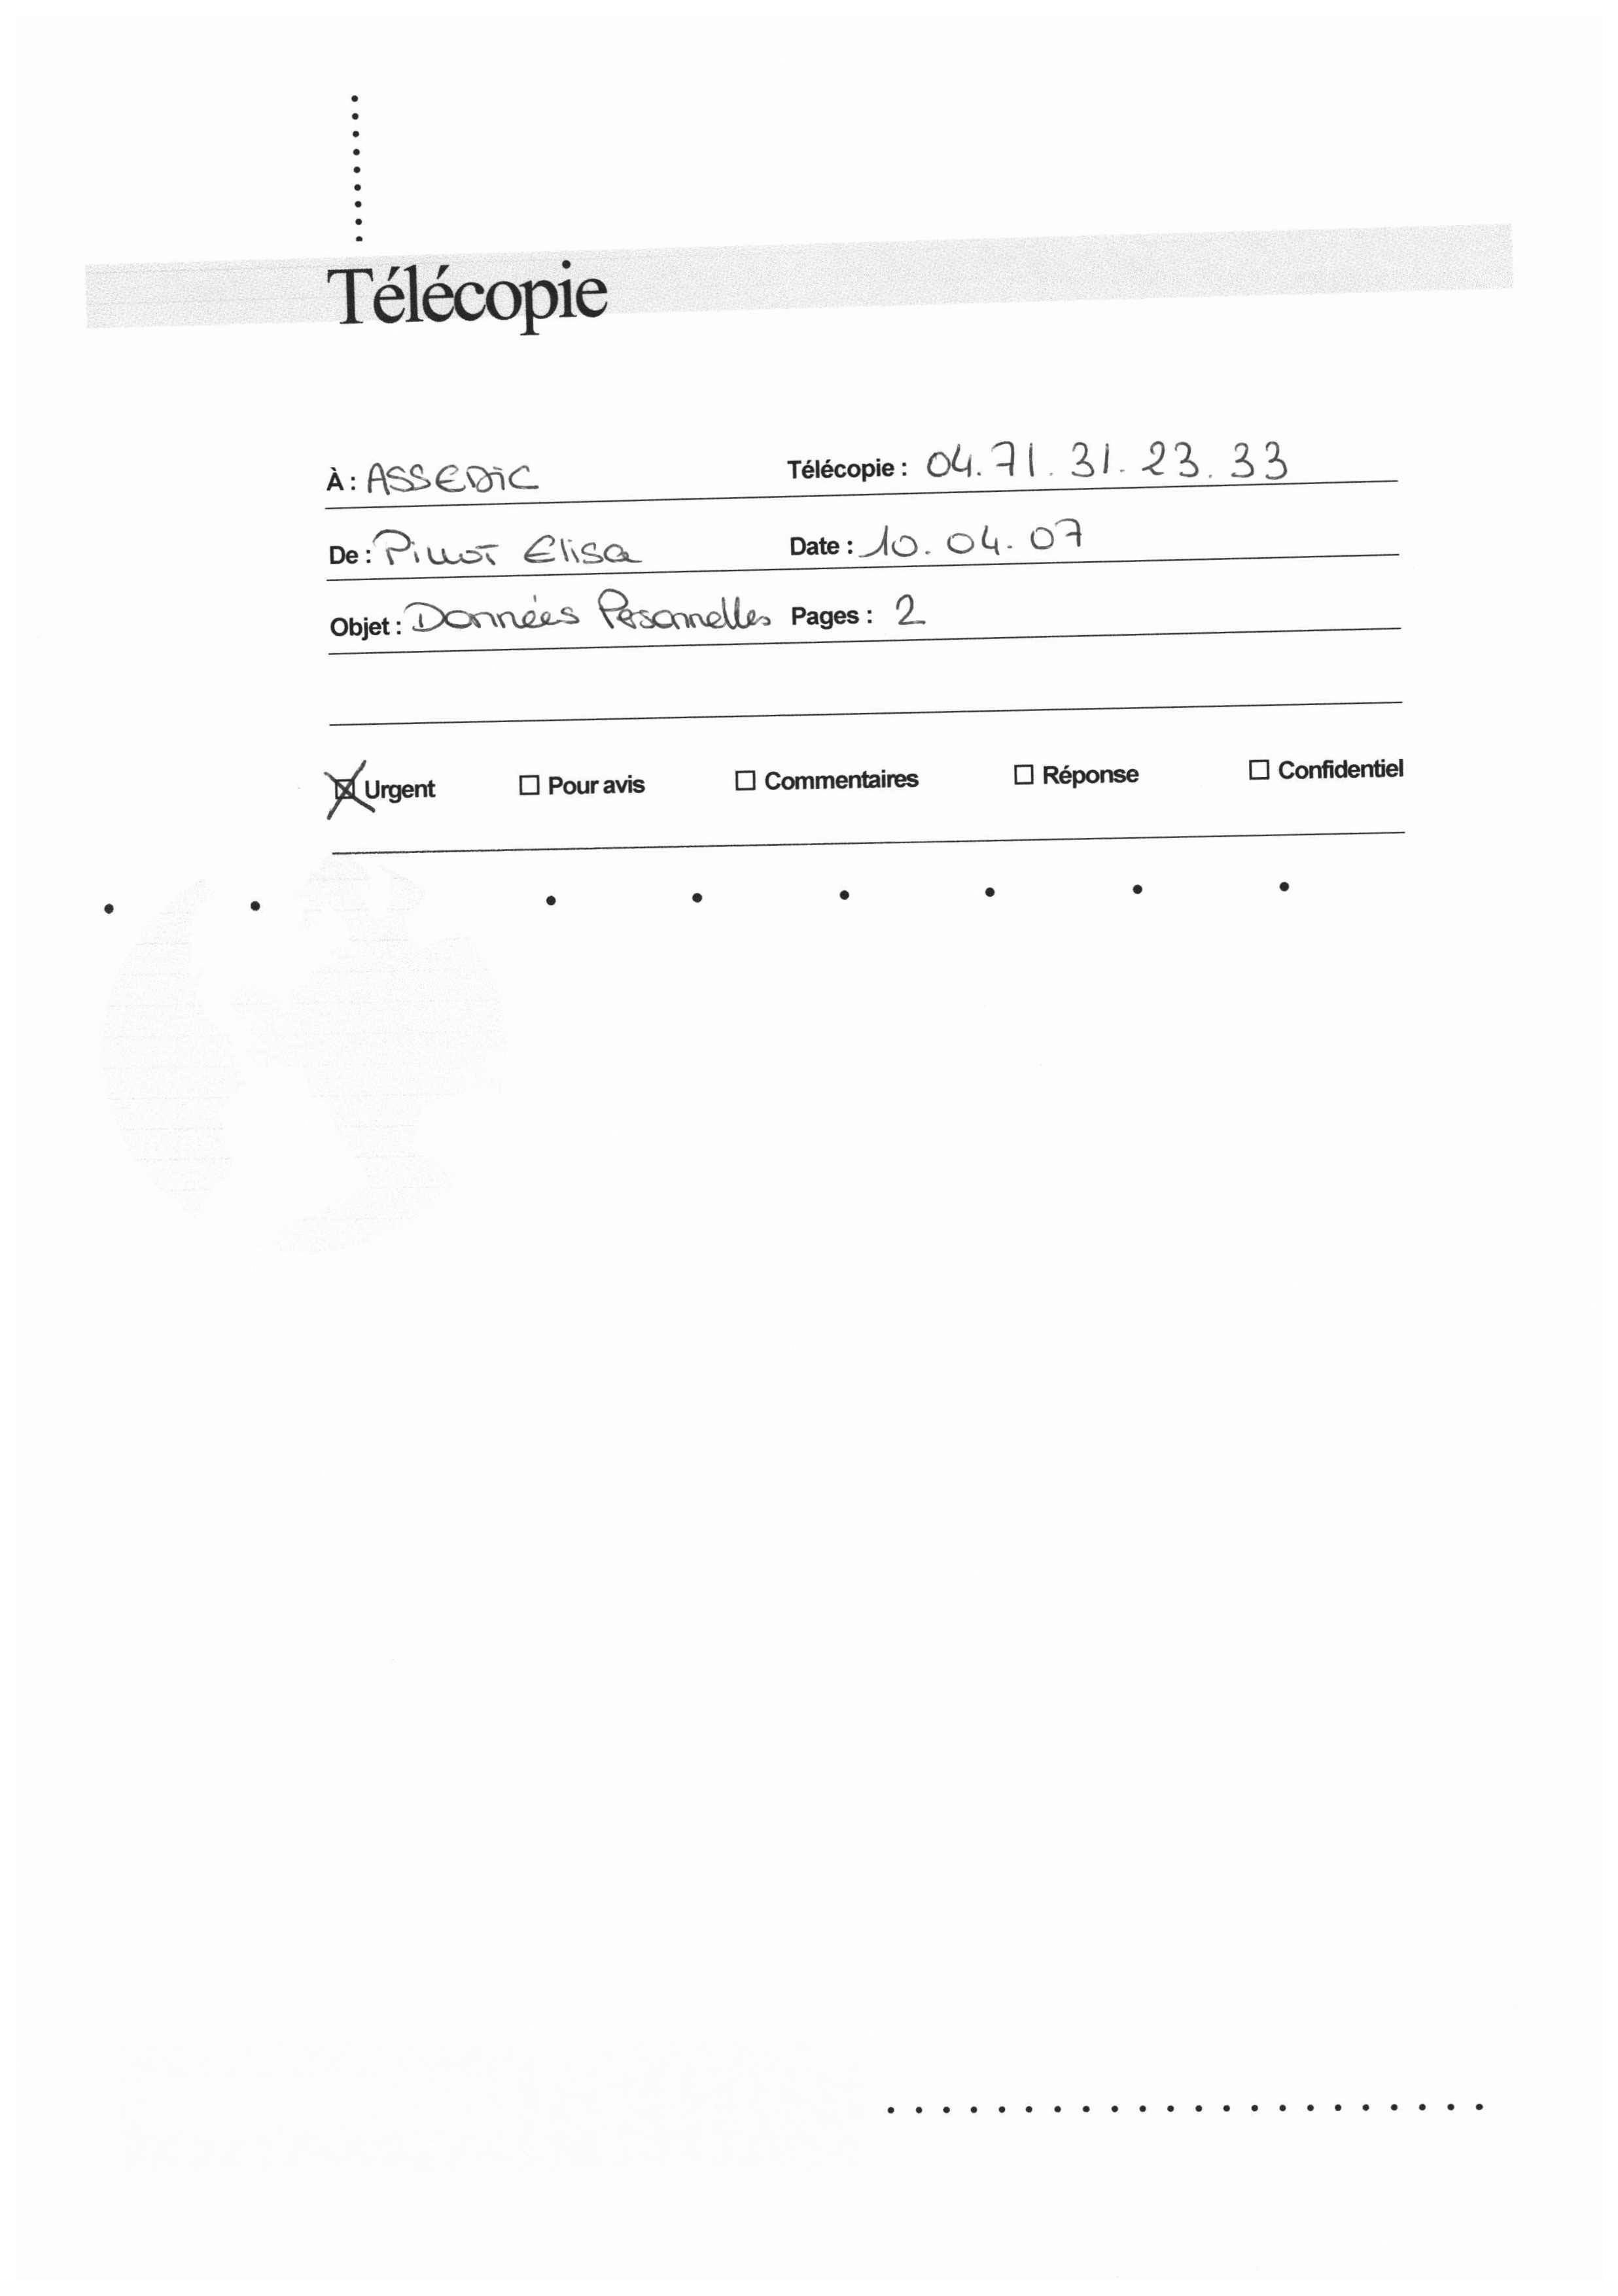 Télécopie
À : ASSEDIC Télécopie : 04.71.31.23.33
De : Pillot Elisa Date : 10.04.07
Objet : Données Personnelles Pages : 2
☒ Urgent ☐ Pour avis ☐ Commentaires ☐ Réponse ☐ Confidentiel